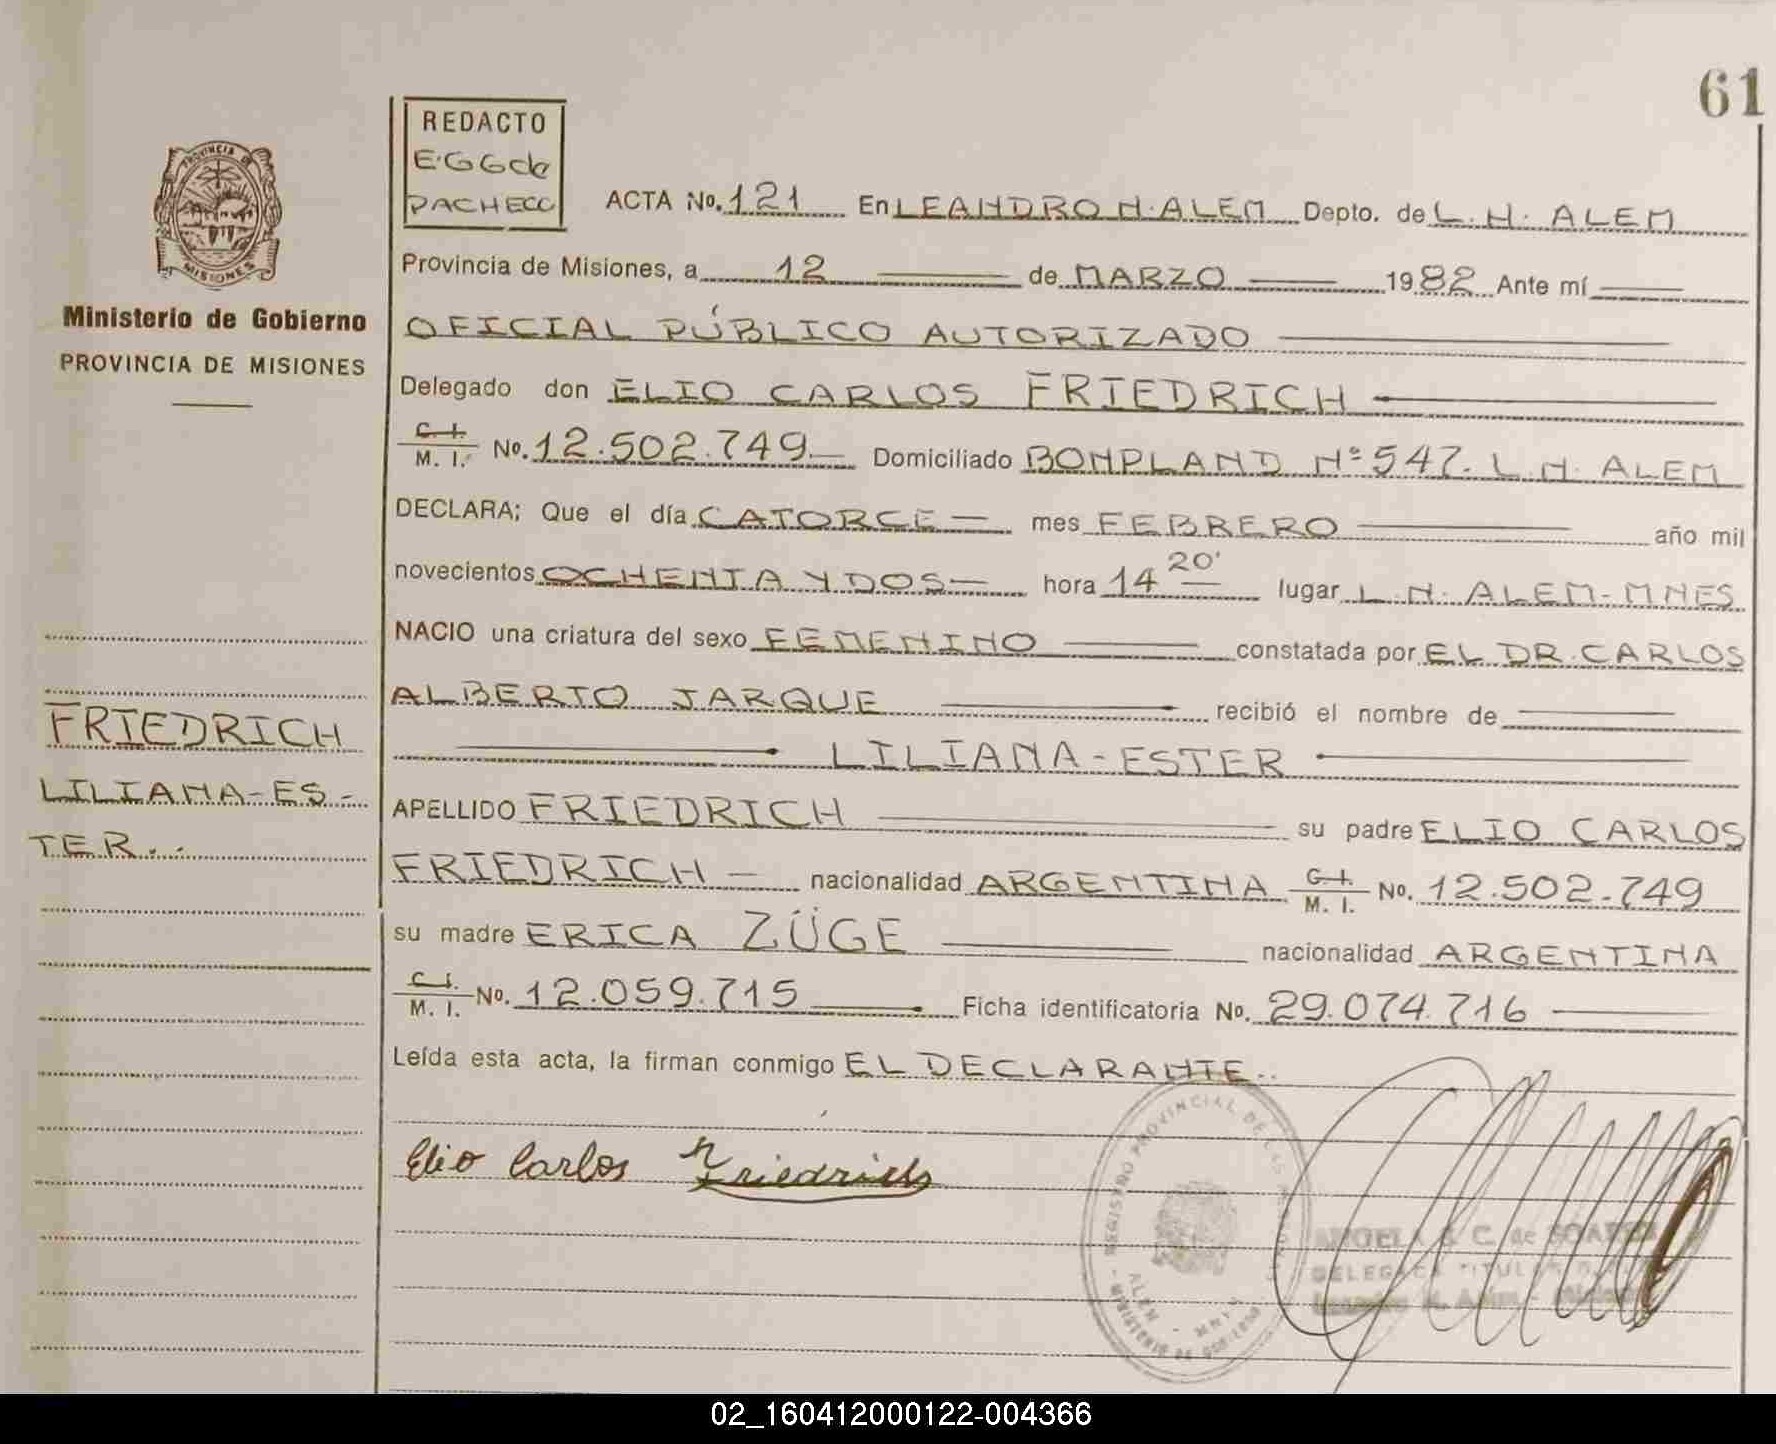 61
REDACTO
E.G.G de
PACHECO
PROVINCIA DE
MISIONES
Ministerio de Gobierno
PROVINCIA DE MISIONES
ACTA No. 121 En LEANDRO N. ALEM Depto. de L. N. ALEM
Provincia de Misiones, a 12 de MARZO 1982 Ante mí
OFICIAL PÚBLICO AUTORIZADO
Delegado don ELIO CARLOS FRIEDRICH
C. I. M. I. No. 12.502.749 Domiciliado BONPLAND Nº 547. L. N. ALEM
DECLARA: Que el día CATORCE mes FEBRERO año mil
novecientos OCHENTA Y DOS hora 14 20' lugar L. N. ALEM-MNES
NACIO una criatura del sexo FEMENINO constatada por EL DR. CARLOS
ALBERTO JARQUE recibió el nombre de
LILIANA-ESTER
APELLIDO FRIEDRICH su padre ELIO CARLOS
FRIEDRICH nacionalidad ARGENTINA C. I. M. I. No. 12.502.749
su madre ERICA ZÜGE nacionalidad ARGENTINA
C. I. M. I. No. 12.059.715 Ficha identificatoria No. 29.074.716
Leída esta acta, la firman conmigo EL DECLARANTE..
FRIEDRICH
LILIANA-ES-
TER..
Elio Carlos Friedrich
REGISTRO PROVINCIAL DE LAS
ALEM - MNES
MINISTERIO DE GOBIERNO
C. de
DELEGADA TITULAR
Leandro N. Alem - Misiones
02_160412000122-004366